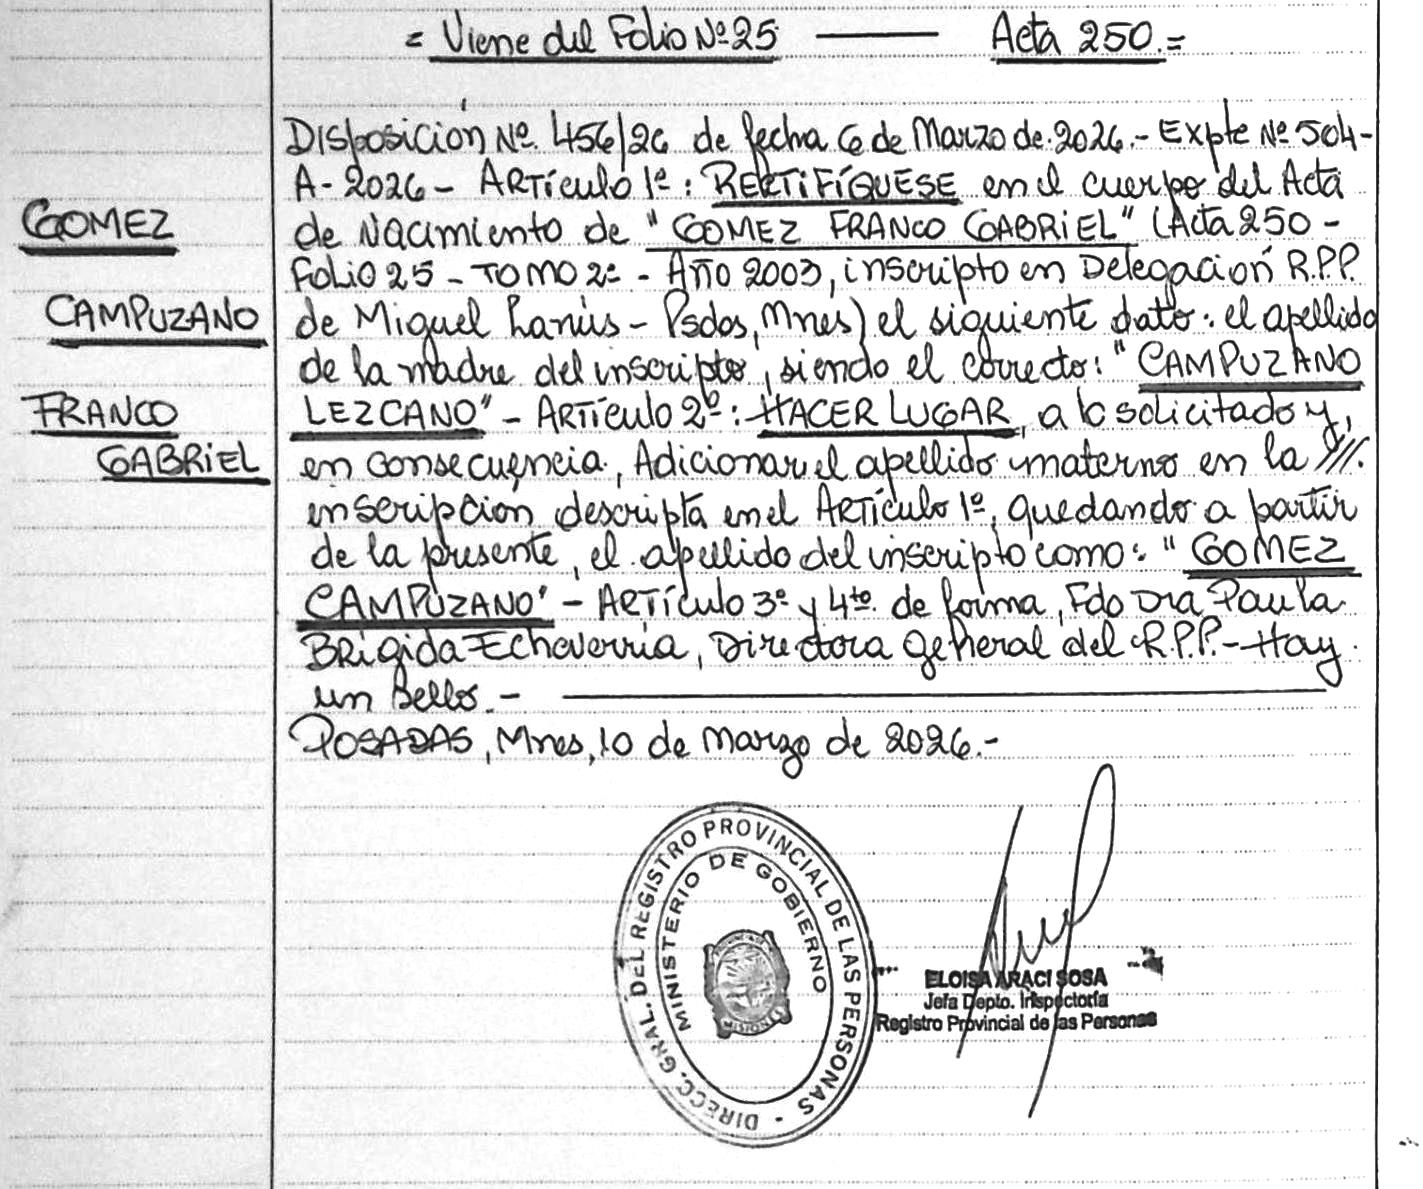 = Viene del Folio Nº 25 ——— Acta 250.=
GOMEZ
CAMPUZANO
FRANCO
GABRIEL
Disposición Nº. 456/26 de fecha 6 de Marzo de 2026.- Expte Nº 504-
A-2026- Artículo 1º: RECTIFÍQUESE en el cuerpo del Acta
de Nacimiento de "GOMEZ FRANCO GABRIEL" (Acta 250 -
Folio 25 - TOMO 2º - Año 2003, inscripto en Delegación R.P.P.
de Miguel Lanús - Psdas, Mnes) el siguiente dato: el apellido
de la madre del inscripto, siendo el correcto: "CAMPUZANO
LEZCANO" - Artículo 2º: HACER LUGAR, a lo solicitado y,
en consecuencia, Adicionar el apellido materno en la ///.
inscripción descripta en el Artículo 1º, quedando a partir
de la presente, el apellido del inscripto como: "GOMEZ
CAMPUZANO" - Artículo 3º y 4to. de forma, Fdo Dra Paula
Brigida Echeverria, Directora General del R.P.P.- Hay
un Sello. - ———
POSADAS, Mnes, 10 de Marzo de 2026.-
DIRECC. GRAL. DEL REGISTRO PROVINCIAL DE LAS PERSONAS -
MINISTERIO DE GOBIERNO
MISIONES
ELOISA ARACI SOSA
Jefa Depto. Inspectoría
Registro Provincial de las Personas